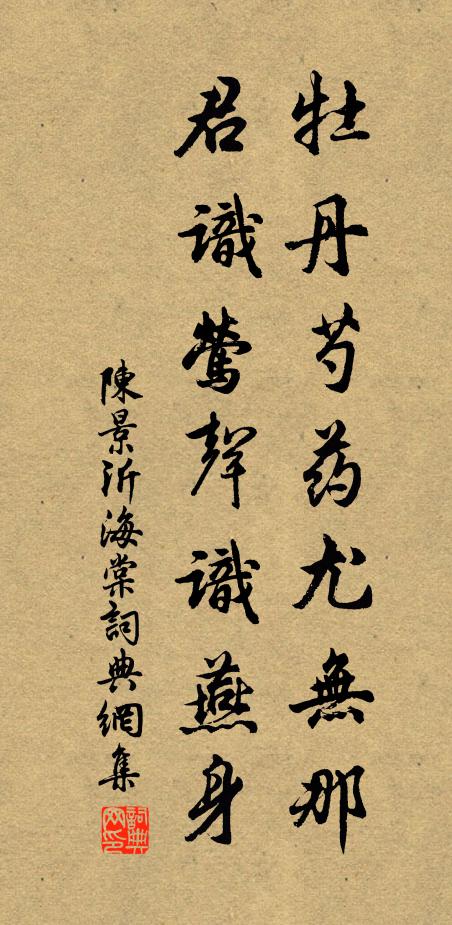 牡丹芍药尤無那
君識鶯聲識燕身
陳景沂海棠詞典網集
詞典网印